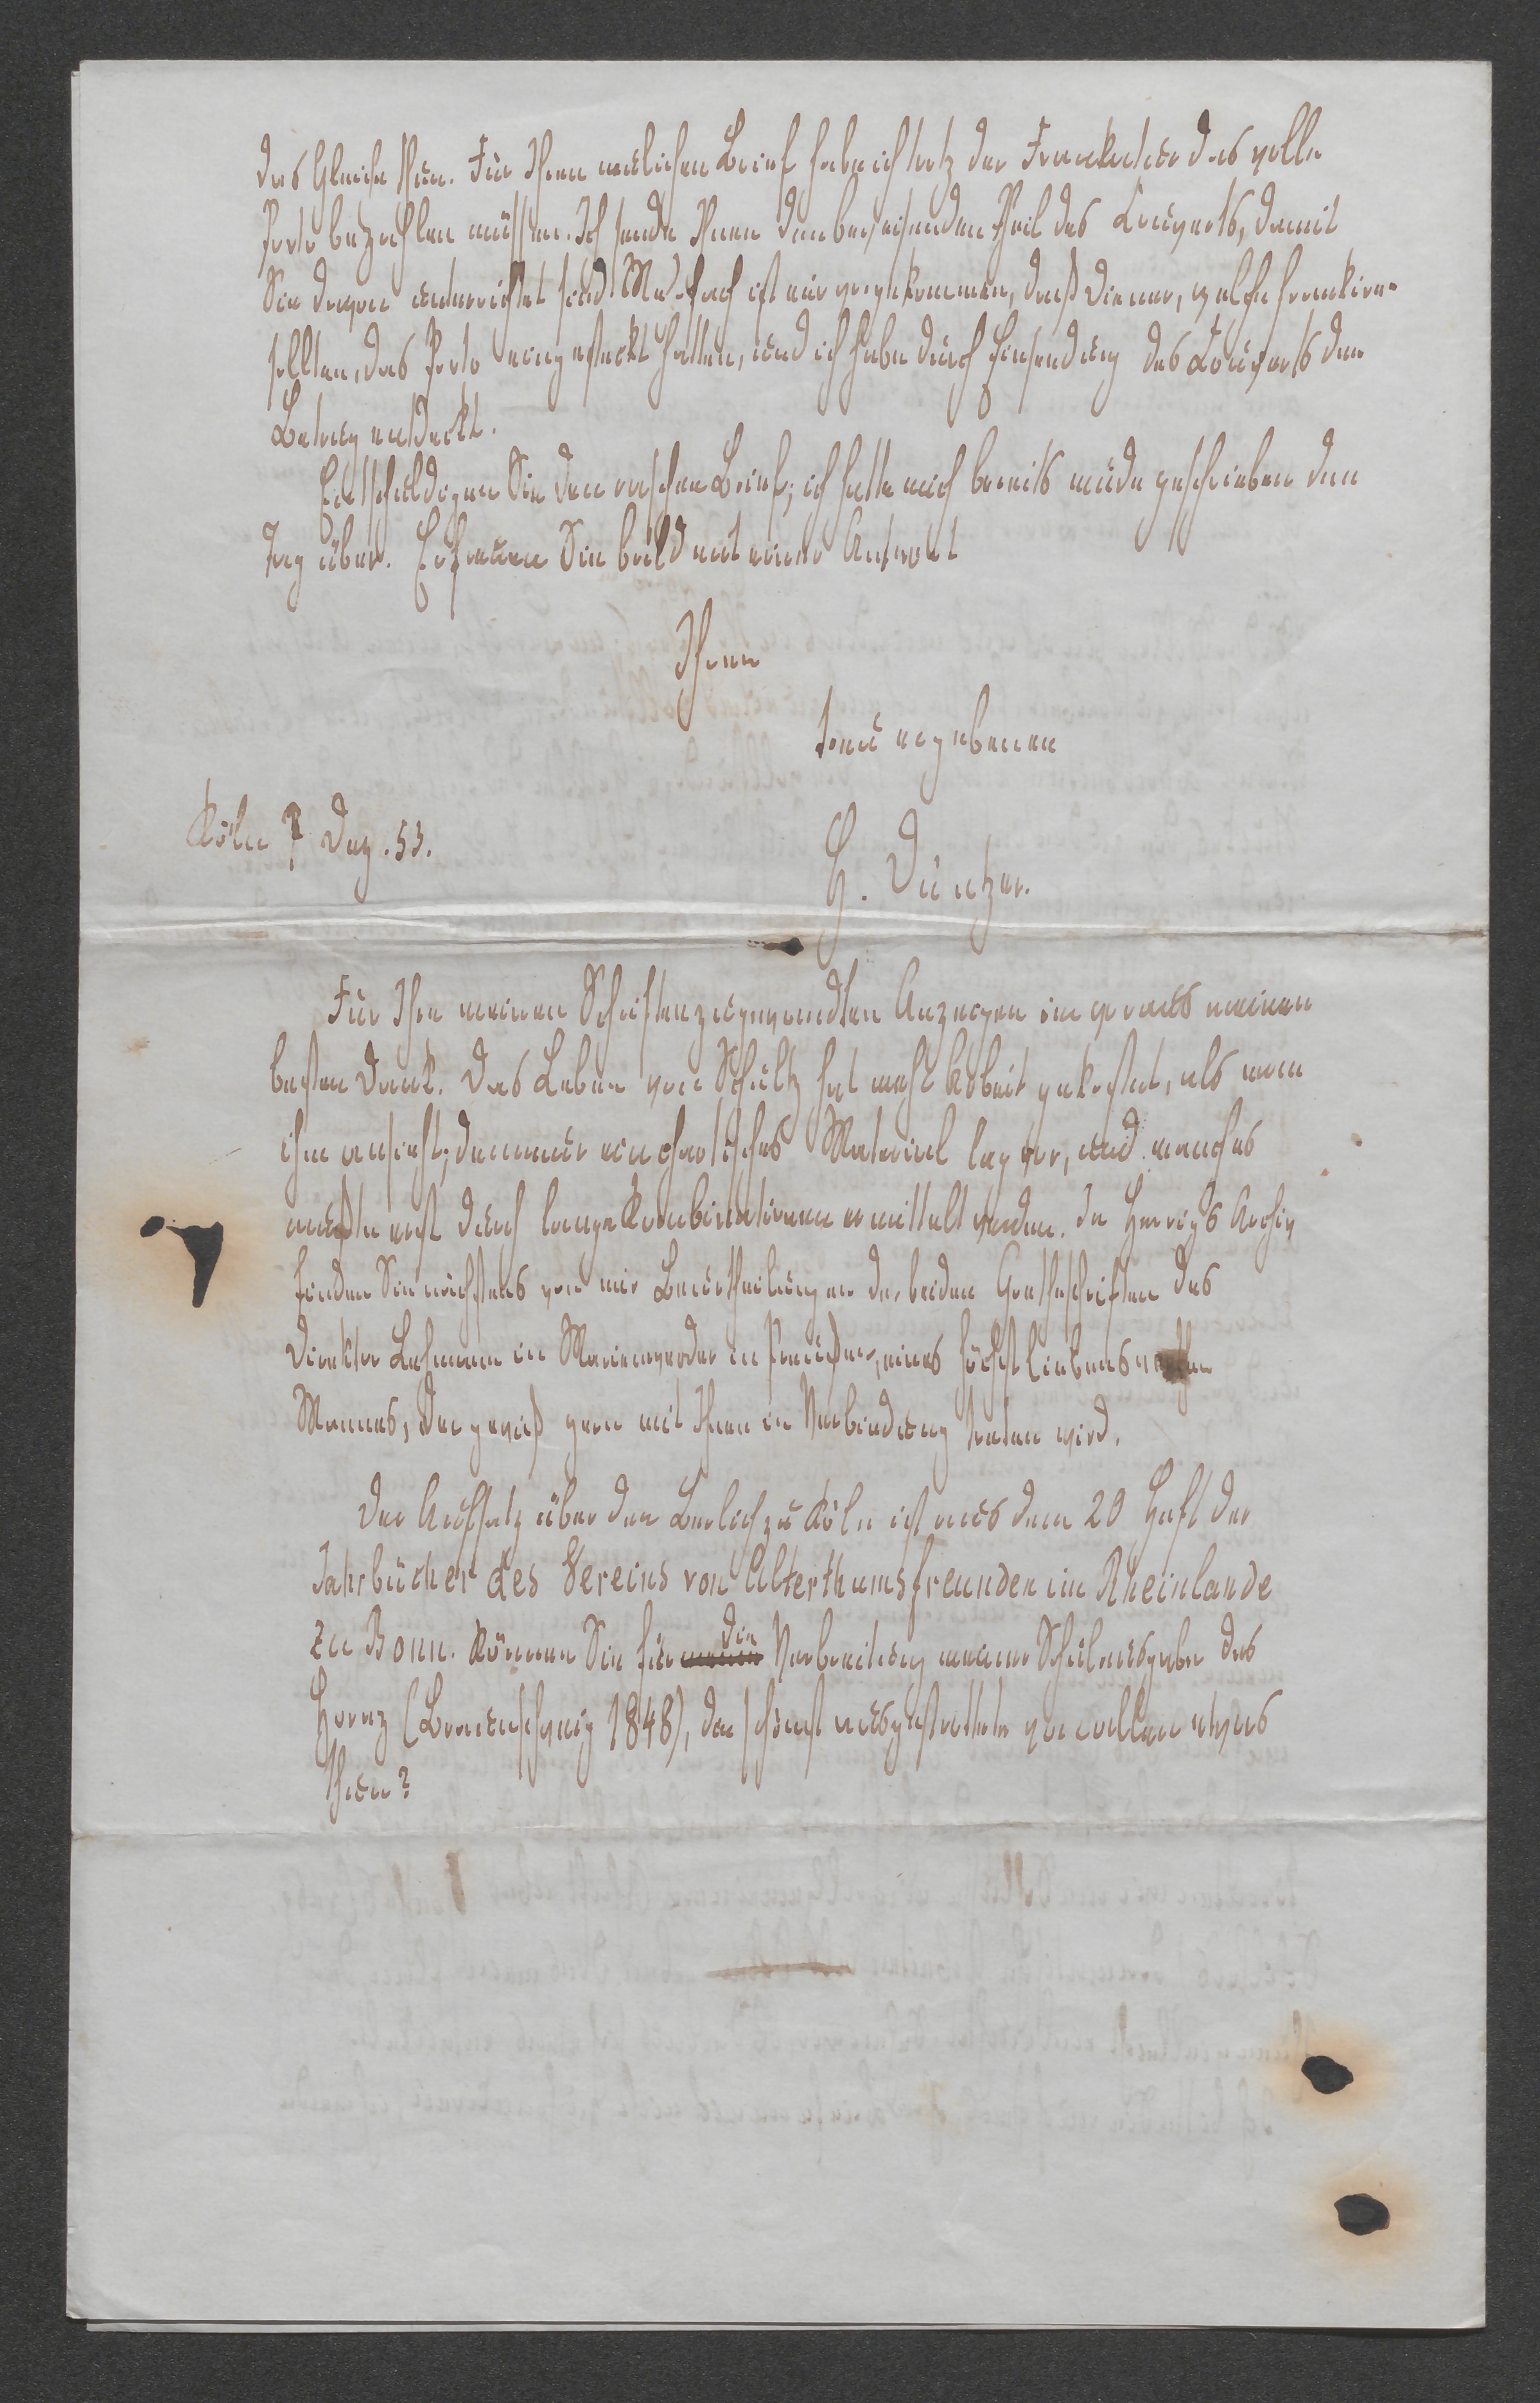 das Gleiche thun. Für Ihren neulichen Brief habe ich trotz der Frankatur das volle
Porto bezahlen müssen. Ich sende Ihnen den beweisenden Theil des Couverts, damit
Sie davon unterrichtet sind. Mehrfach ist mir vorgekommen, daß Diener, welche frankiren
sollten, das Porto eingesteckt hatten, und ich habe durch Einsendung des Couverts den
Betrug entdeckt.
Entschuldigen Sie den raschen Brief; ich hatte mich bereits müde geschrieben den
Tag über. Erfreuen Sie bald mit einer Antwort
Ihren
treu ergebenen
Köln 7 Dez. 53.
H. Düntzer.
Für Ihre meinen Schriften zugewandten Anzeigen im voraus meinen
besten Dank. Das Leben von Schultz hat mehr Arbeit gekostet, als man
ihm ansieht; denn nur ein chaotisches Material lag vor, und manches
mußte erst durch lange Kombinationen ermittelt werden. In Herrig's Archiv
finden Sie nächstens von mir Beurtheilungen der beiden Goetheschriften des
Direktor Lehmann in Marienwerder in Preußen, eines höchst liebenswerthen
Mannes, der gewiß gern mit Ihnen in Verbindung treten wird.
Der Aufsatz über den Berlich zu Köln ist aus dem 20 Heft der
Jahrbücher des Vereins von Alterthumsfreunden im Rheinlande
zu Bonn. Können Sie für die Verbreitung meiner Schulausgabe des
Horaz (Braunschweig 1848), der schönst ausgestatteten von allen etwas
thun?